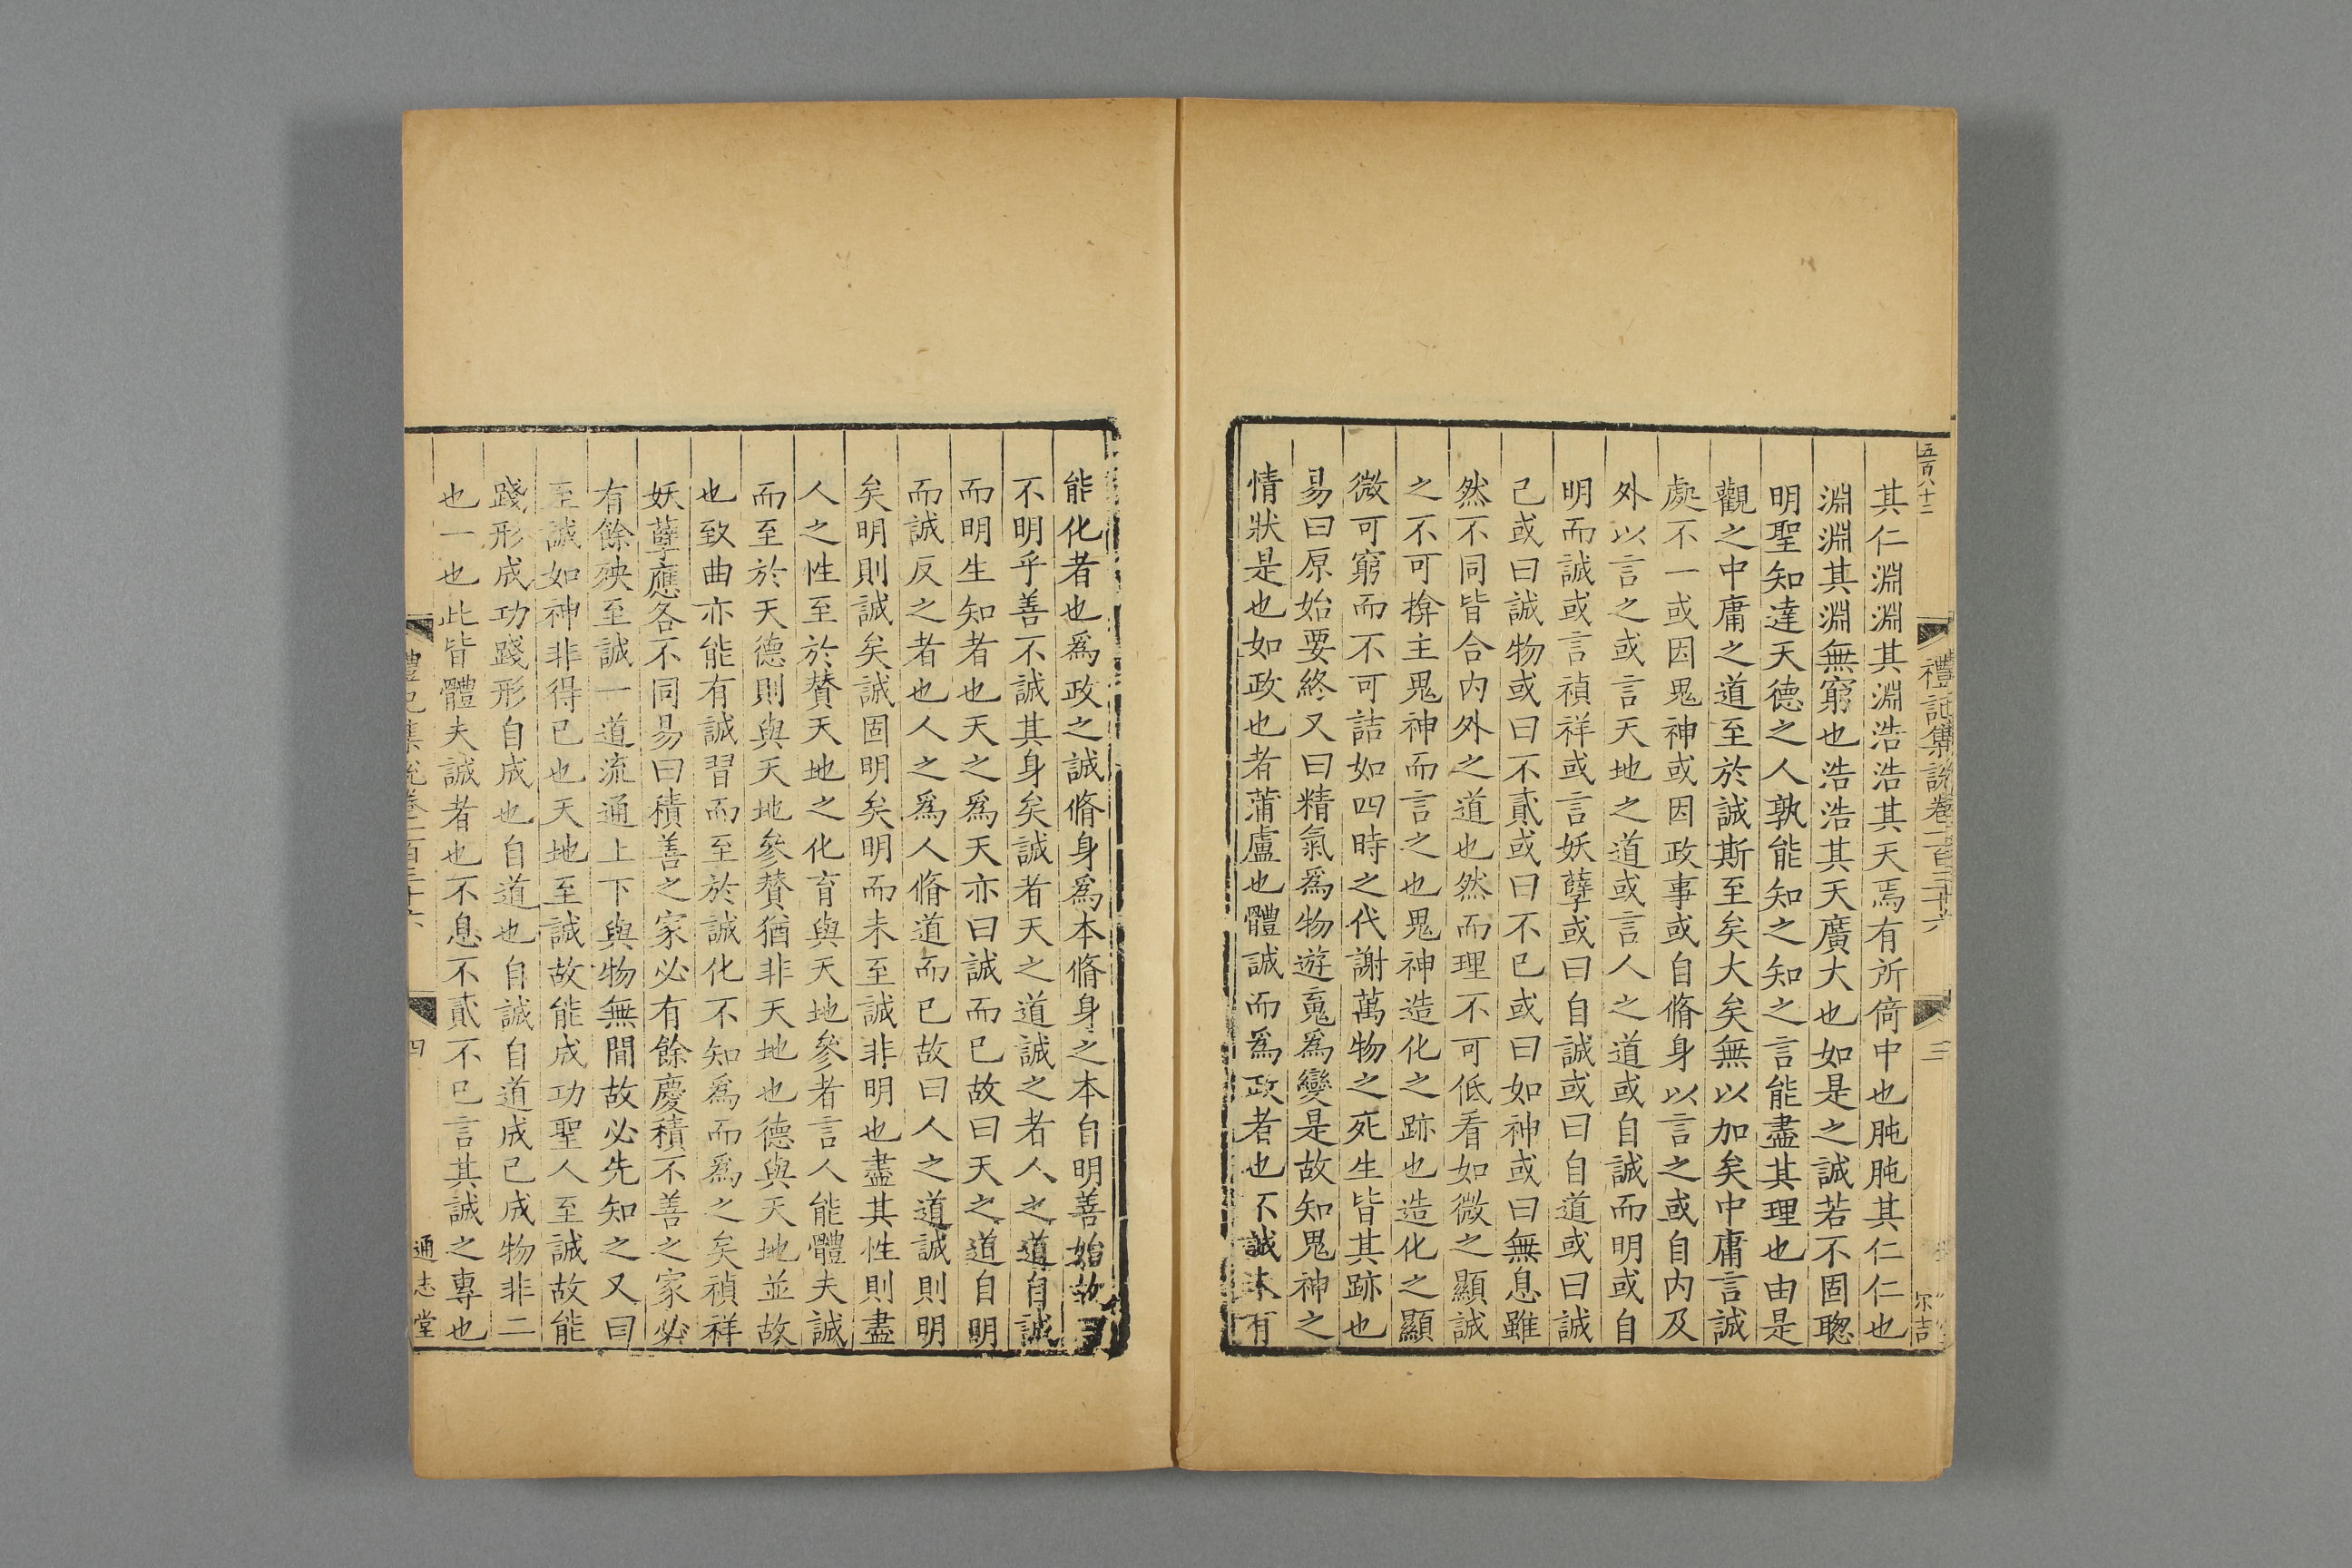 五百八十二
禮記集說卷一百三十六
三
尔吉
其仁淵淵其淵浩浩其天焉有所倚中也肫肫其仁仁也
淵淵其淵無窮也浩浩其天廣大也如是之誠若不固聦
明聖知達天德之人孰能知之知之言能盡其理也由是
觀之中庸之道至於誠斯至矣大矣無以加矣中庸言誠
處不一或因鬼神或因政事或自脩身以言之或自内及
外以言之或言天地之道或言人之道或自誠而明或自
明而誠或言禎祥或言妖孽或曰自誠或曰自道或曰誠
己或曰誠物或曰不貳或曰不已或曰如神或曰無息雖
然不同皆合内外之道也然而理不可低看如微之顯誠
之不可揜主鬼神而言之也鬼神造化之跡也造化之顯
微可窮而不可詰如四時之代謝萬物之死生皆其跡也
易曰原始要終又曰精氣爲物遊䰟爲變是故知鬼神之
情狀是也如政也者蒲盧也體誠而爲政者也不誠未有
能化者也爲政之誠脩身爲本脩身之本自明善始故曰
不明乎善不誠其身矣誠者天之道誠之者人之道自誠
而明生知者也天之爲天亦曰誠而已故曰天之道自明
而誠反之者也人之爲人脩道而已故曰人之道誠則明
矣明則誠矣誠固明矣明而未至誠非明也盡其性則盡
人之性至於贊天地之化育與天地參者言人能體夫誠
而至於天德則與天地參贊猶非天地也德與天地並故
也致曲亦能有誠習而至於誠化不知爲而爲之矣禎祥
妖孽應各不同易曰積善之家必有餘慶積不善之家必
有餘殃至誠一道流通上下與物無間故必先知之又曰
至誠如神非得已也天地至誠故能成功聖人至誠故能
踐形成功踐形自成也自道也自誠自道成己成物非二
也一也此皆體夫誠者也不息不貳不已言其誠之專也
禮記集說卷一百三十六
四
通志堂